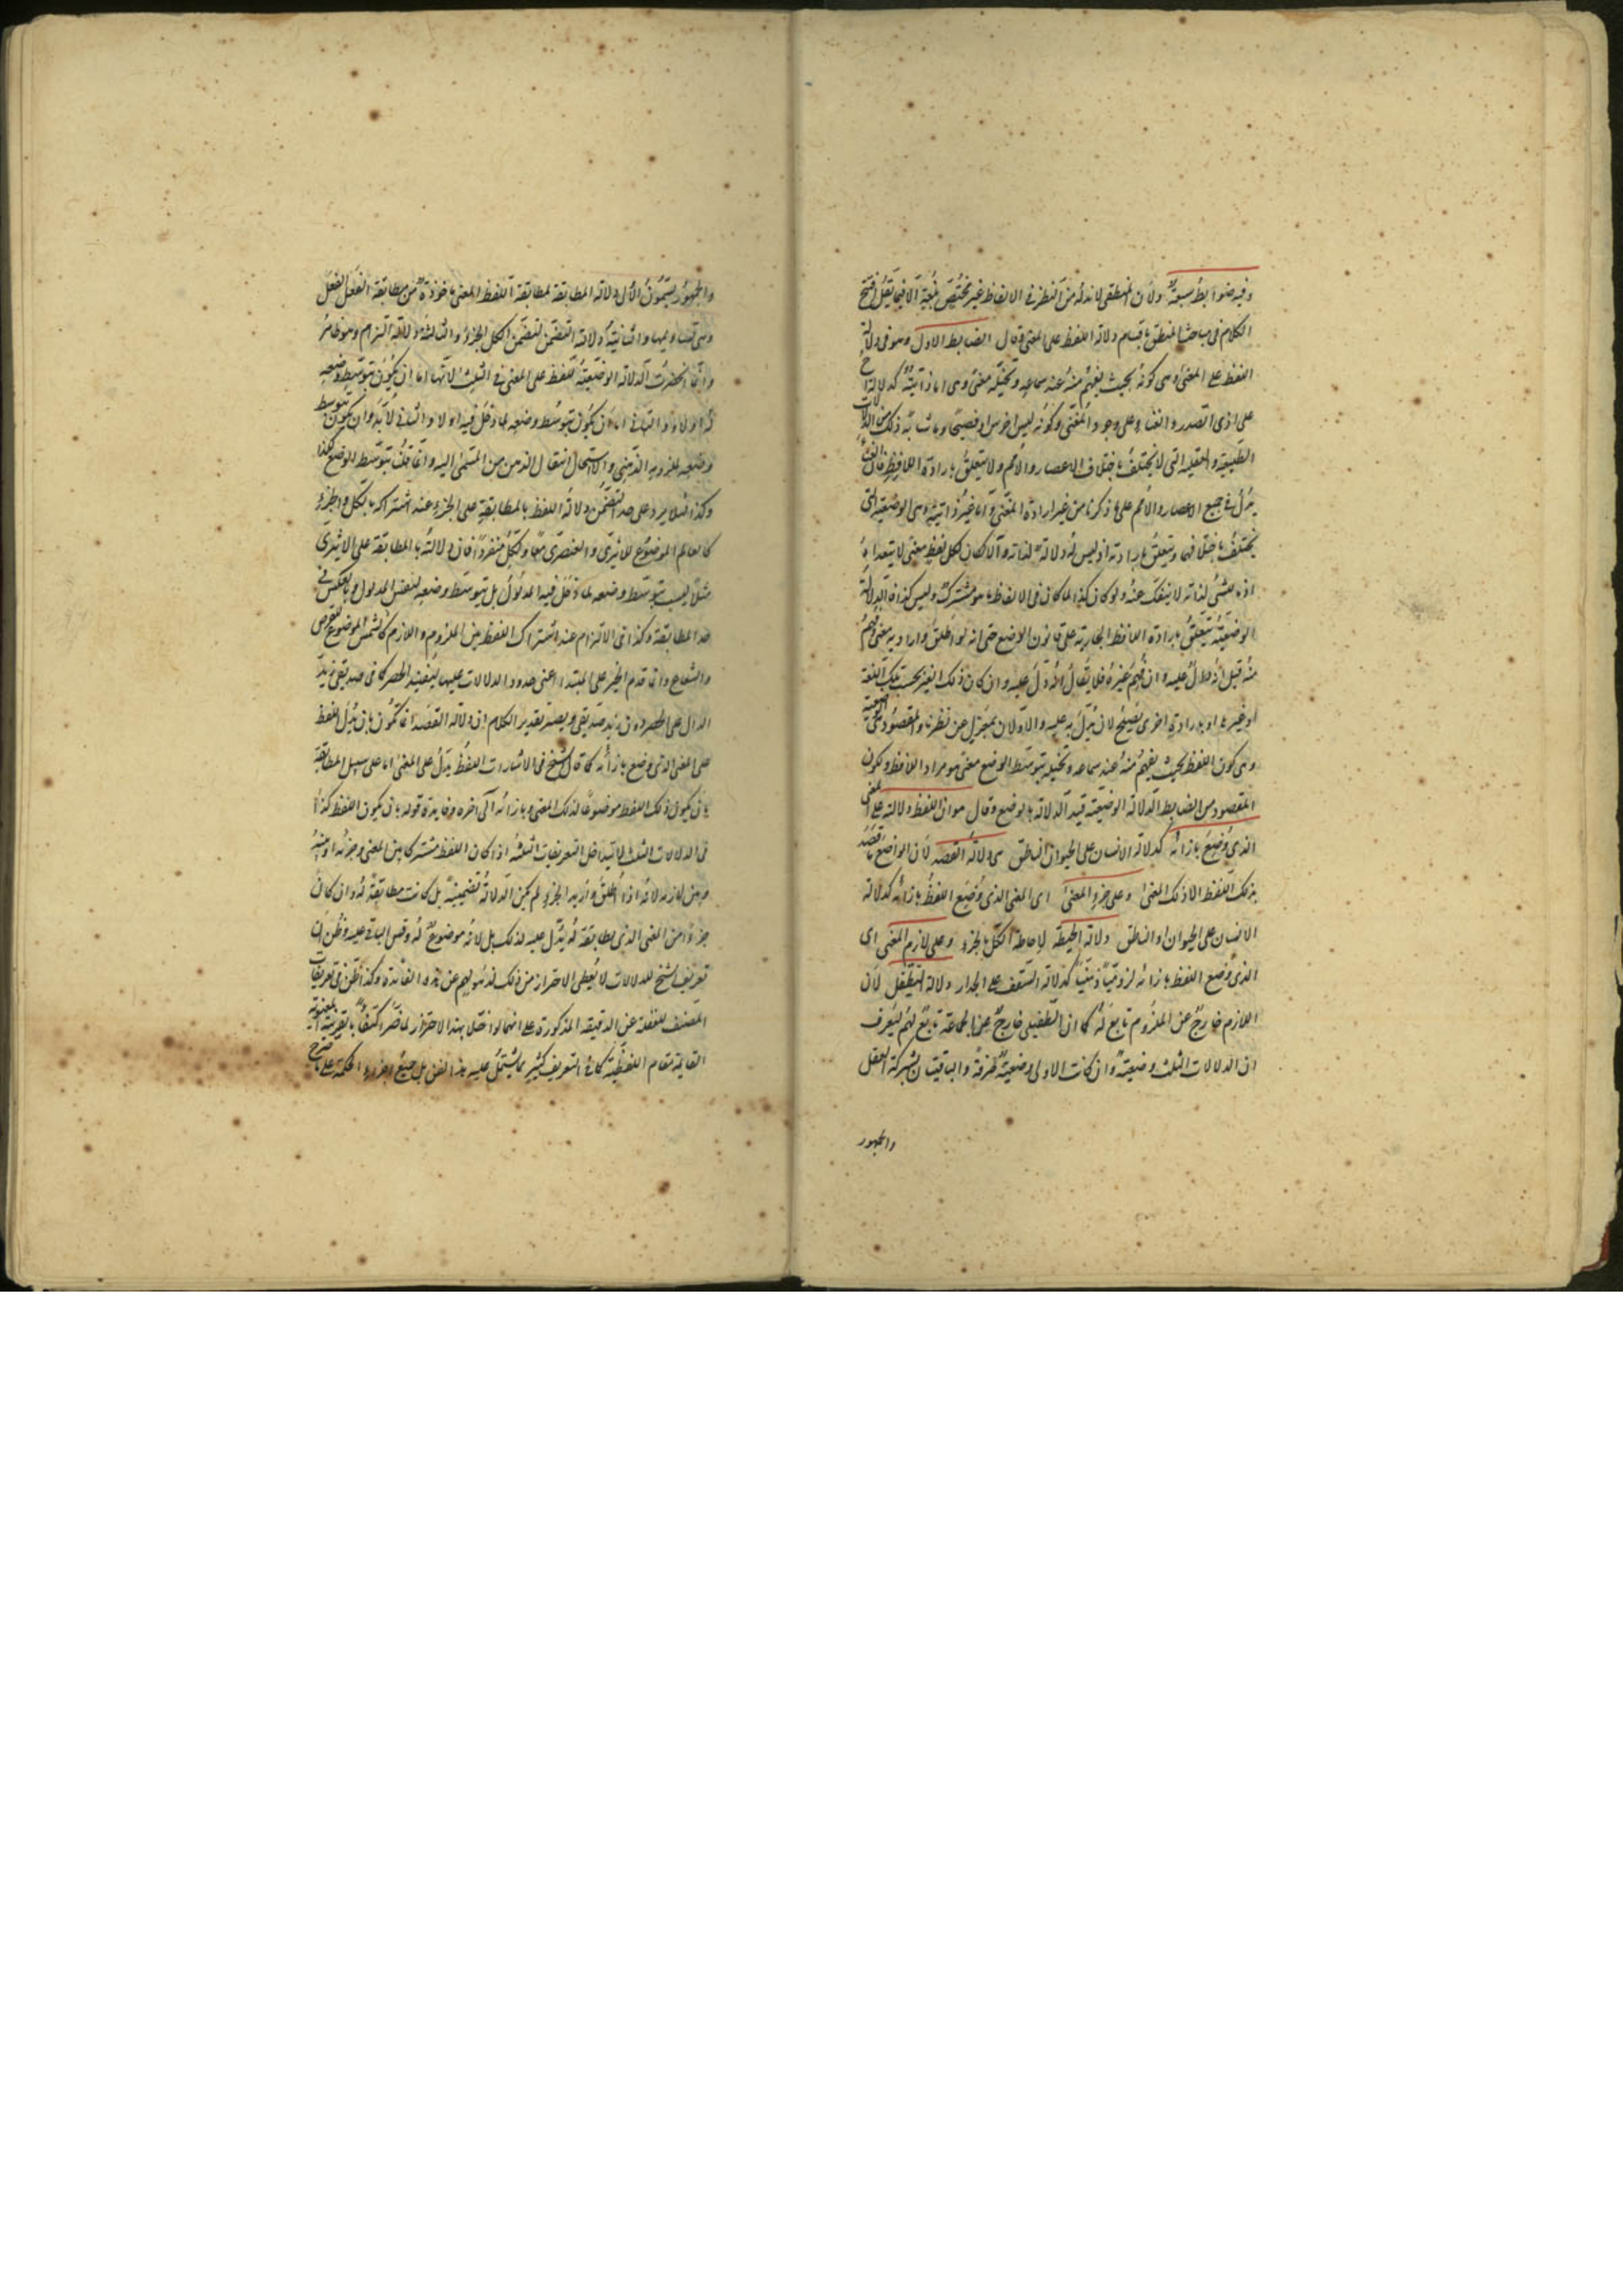 وفيه ضوابط سبعة ولان المنطقى لا بد له من النظر فى الالفاظ غير مختص بلغة الا فيما يقل فتح
الكلام فى مباحث المنطق باقسام دلالة اللفظ على المعنى وقال الضابط الاول وهو فى دلالة
اللفظ على المعنى وهى كونه بحيث يفهم منه عند سماعه وتخيله معنى وهى اما ذاتية كدلالة اح
على اذى الصدر والغناء على وجود المغنى وكونه ليس اخرس او فصيحا وما شابه ذلك من الدلالات
الطبيعية والعقلية التى لا يختلف باختلاف الاعصار والامم ولا يتعلق بارادة اللافظ فان الغناء
يدل فى جميع الاعصار والامم على ما ذكرنا من غير ارادة المغنى واما غير ذاتية وهى الوضعية التى
يختلف باختلافهما ويتعلق بارادته اذ ليس له دلالة لذاته والا لكان لكل لفظ معنى لا يتعداه
اذ ما للشئ لذاته لا ينفك عنه ولو كان كذا لما كان فى الالفاظ ما هو مشترك وليس كذا فالدلالة
الوضعية يتعلق بارادة اللافظ الجارية على قانون الوضع حتى انه لو اطلق واراد به معنى وفهم
منه قيل انه دال عليه وان فهم غيره فلا يقال انه دل عليه وان كان ذلك الغير بحسب تلك اللغة
او غيرها او بارادة اخرى يصلح لان يدل به عليه والاولان بمعزل عن نظرنا والمقصود هى الوضعية
وهى كون اللفظ بحيث يفهم منه عند سماعه وتخيله بتوسط الوضع معنى هو مراد اللافظ ولكون
المقصود من الضابط الدلالة الوضعية قيد الدلالة بالوضع وقال هو ان اللفظ دلالته على المعنى
الذى وضع بازائه كدلالة الانسان على الحيوان الناطق هى دلالة القصد لان الواضع ما قصد
بذلك اللفظ الا ذلك المعنى وعلى جزء المعنى اى المعنى الذى وضع اللفظ بازائه كدلالة
الانسان على الحيوان او الناطق دلالة الحيطة لاحاطة الكل بالجزء وعلى لازم المعنى اى
الذى وضع اللفظ بازائه لزوما ذهنيا كدلالة السقف على الجدار دلالة التطفل لان
اللازم خارج عن الملزوم تابع له كما ان الطفيلى خارج عن الجماعة تابع لهم ليعرف
ان الدلالات الثلث وضعية وان كانت الاولى وضعية صرفة والباقيتان بشركة العقل
والجمهور
والجمهور يسمون الاولى دلالة المطابقة لمطابقة اللفظ المعنى ماخوذة من مطابقة النعل النعل
والثانية دلالة التضمن لتضمن الكل الجزء والثالثة دلالة التزام وهو ظاهر
وانما انحصرت الدلالة الوضعية للفظ على المعنى فى الثلث لانها اما ان يكون بتوسط وضعه
له او لا والثانى اما ان يكون بتوسط وضعه لما دخل فيه او لا والثانى لا بد وان يكون بتوسط
وضعه لملزومه الذهنى والا استحال انتقال الذهن من المسمى اليه وانما قلت بتوسط الوضع
وكذا لئلا يرد على حد التضمن دلالة اللفظ بالمطابقة على الجزء عند اشتراكه بين الكل والجزء
كالعالم الموضوع للاثيرى والعنصرى معا ولكل منفردا فان دلالته بالمطابقة على الاثيرى
مثلا ليست بتوسط وضعه لما دخل فيه المدلول بل بتوسط وضعه لنفس المدلول وبالعكس فى
حد المطابقة وكذا فى الالتزام عند اشتراك اللفظ بين الملزوم واللازم كالشمس الموضوع للقرص
والشعاع وانما قدم الخبر على المبتداء اعنى حدود الدلالات عليها ليفيد الحصر كما فى صديقى زيد
الدال على الحصر دون زيد صديقى ويصير تقدير الكلام ان دلالة القصد انما تكون بان يدل اللفظ
على المعنى الذى وضع بازائه كما قال الشيخ فى الاشارات اللفظ يدل على المعنى اما على سبيل المطابقة
بان يكون ذلك اللفظ موضوعا لذلك المعنى وبازائه الى اخره وفايدة قوله بان يكون اللفظ كذا
فى الدلالات الثلث لئلا يتداخل التعريفات الثلثة اذا كان اللفظ مشتركا بين المعنى وجزئه او بينه
وبين لازمه لانه اذا اطلق واريد به الجزء لم يكن الدلالة تضمنية بل كانت مطابقة له وان كان
جزءا من المعنى الذى مطابقة له يدل عليه لذلك بل لانه موضوع له وقس الباقى عليه وظن ان
تعريف الشيخ للدلالات لا يعطى الاحتراز من ذلك لذهولهم عن هذه الفائدة وكذا الظن فى تعريفات
المصنف للغفلة عن الدقيقة المذكورة على انهما لو اخلا بهذا الاحتراز لما ضر اكتفاء بالقرينة المعنوية
القايمة مقام اللفظية كما فى التعريف كثير مما يشتمل عليه هذا الفن بل جميع اجزاء الحكمة على ما صرح